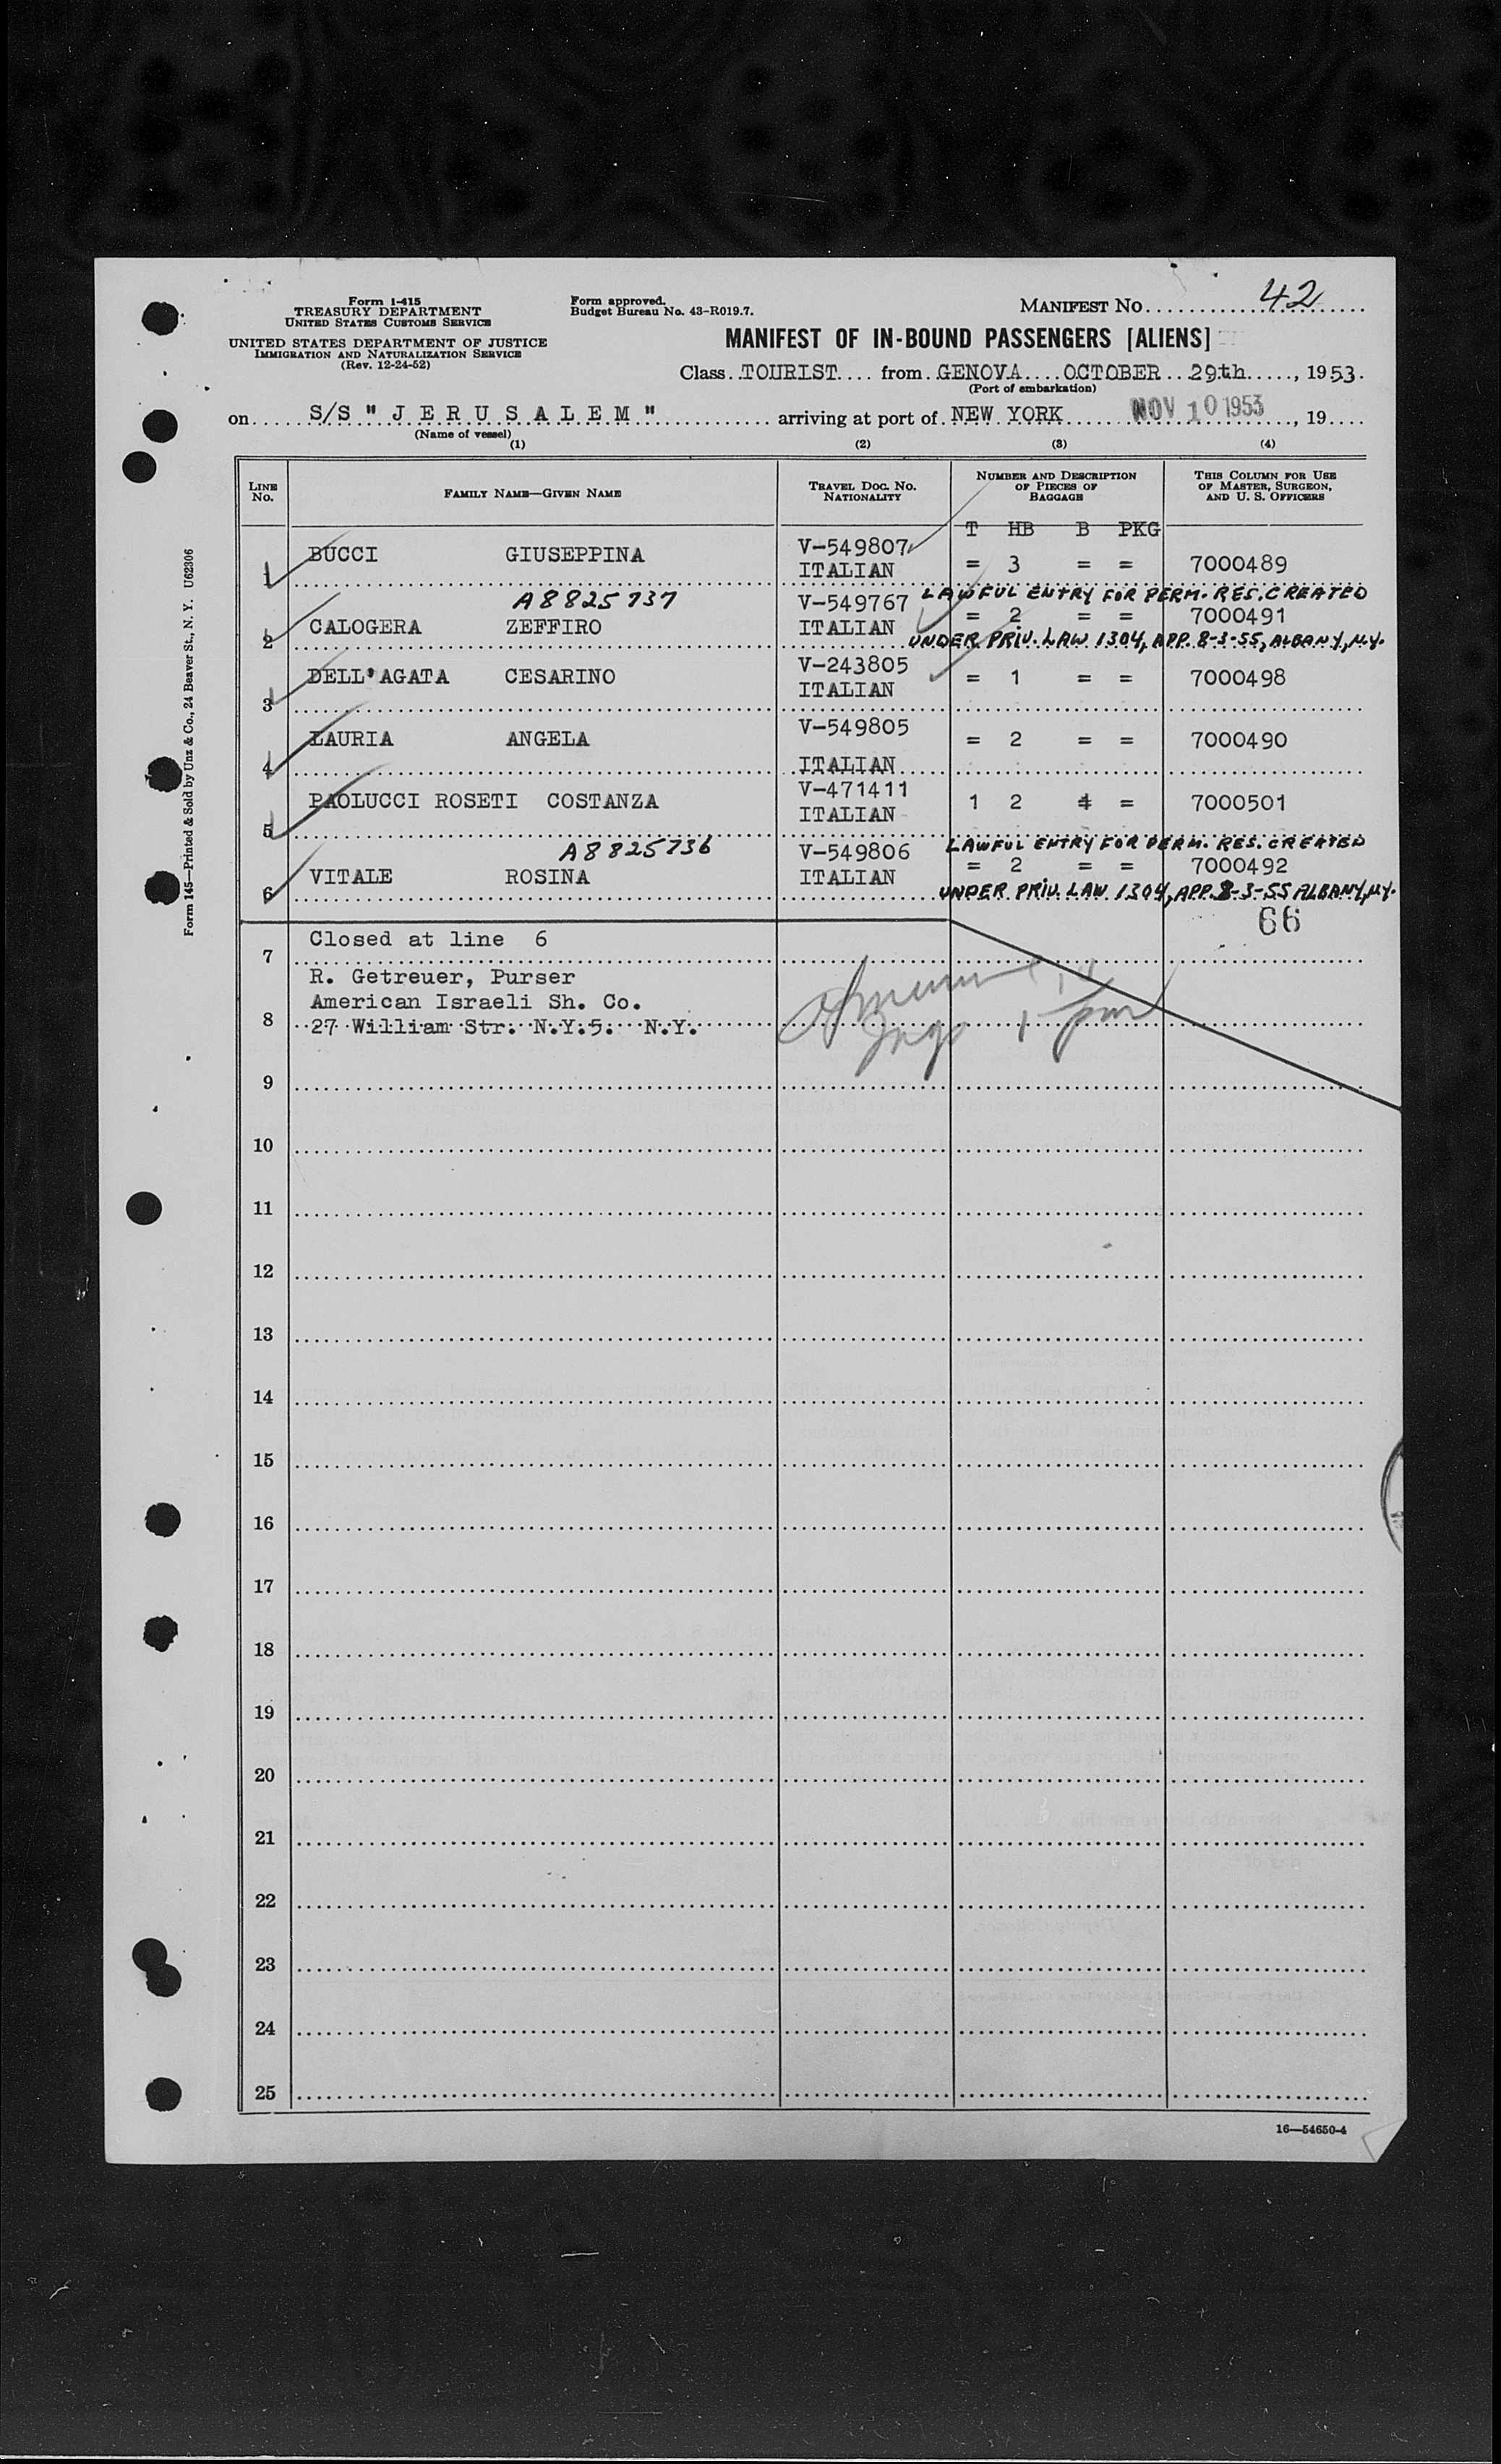 Form I-415
TREASURY DEPARTMENT
UNITED STATES CUSTOMS SERVICE
UNITED STATES DEPARTMENT OF JUSTICE
IMMIGRATION AND NATURALIZATION SERVICE
(Rev. 12-24-52)
Form approved.
Budget Bureau No. 43-R019.7.
MANIFEST NO. 42
MANIFEST OF IN-BOUND PASSENGERS [ALIENS]
Class TOURIST from GENOVA OCTOBER 29th, 1953.
(Port of embarkation)
on S/S " J E R U S A L E M " arriving at port of NEW YORK NOV 10 1953, 19
(Name of vessel)
(1) (2) (3) (4)
LINE NO. FAMILY NAME—GIVEN NAME TRAVEL DOC. NO. NATIONALITY NUMBER AND DESCRIPTION OF PIECES OF BAGGAGE THIS COLUMN FOR USE OF MASTER, SURGEON, AND U. S. OFFICERS
T HB B PKG
1 BUCCI GIUSEPPINA V-549807 ITALIAN = 3 = = 7000489
A8825737 V-549767 LAWFUL ENTRY FOR PERM. RES. CREATED
2 CALOGERA ZEFFIRO ITALIAN = 2 = = 7000491
UNDER PRIV. LAW 1304, APP. 8-3-55, ALBANY, N.Y.
3 DELL'AGATA CESARINO V-243805 ITALIAN = 1 = = 7000498
4 LAURIA ANGELA V-549805 ITALIAN = 2 = = 7000490
5 PAOLUCCI ROSETI COSTANZA V-471411 ITALIAN 1 2 = 7000501
A8825736 V-549806 LAWFUL ENTRY FOR PERM. RES. CREATED
6 VITALE ROSINA ITALIAN = 2 = = 7000492
UNDER PRIV. LAW 1304, APP. 8-3-55 ALBANY, N.Y.
66
7 Closed at line 6
R. Getreuer, Purser
American Israeli Sh. Co.
8 27 William Str. N.Y.5. N.Y.
9
10
11
12
13
14
15
16
17
18
19
20
21
22
23
24
25
16—54650-4
Form 145—Printed & Sold by Unz & Co., 24 Beaver St., N. Y. U62306